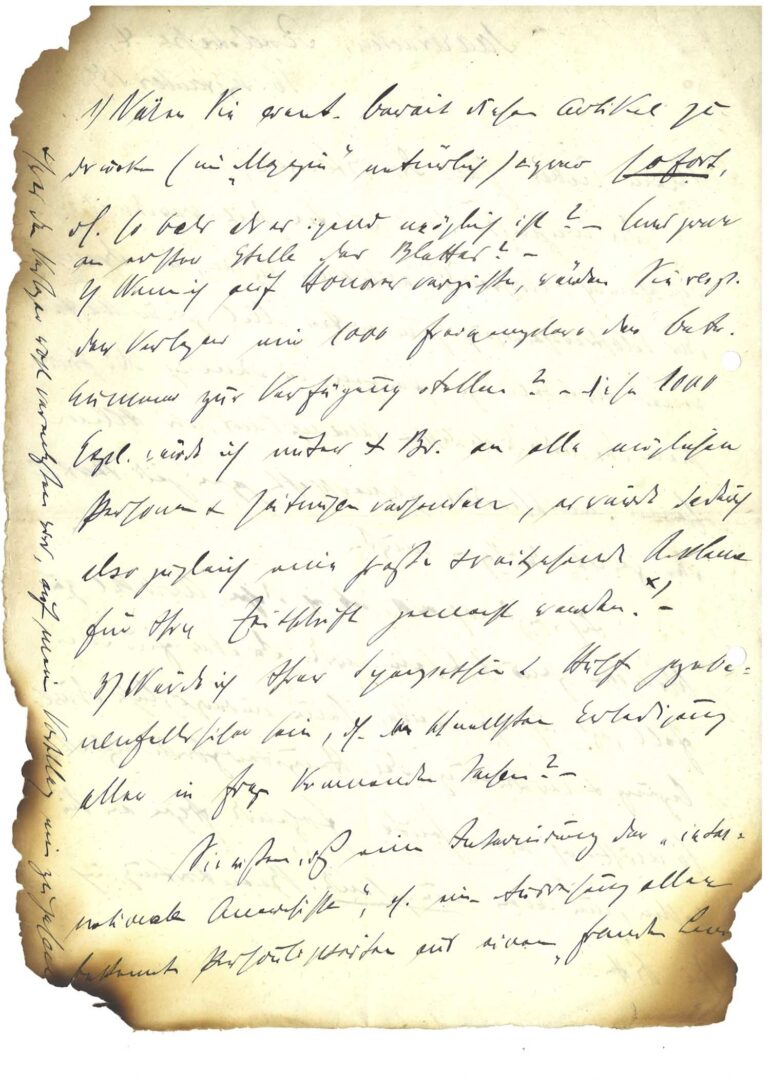 1) Wären Sie event. bereit diesen Artikel zu
drucken (im „Magazin“ natürlich) sofort,
d.h. so bald als es irgend möglich ist? – Und zwar
an erster Stelle des Blattes? –
2) Wenn ich auf Honorar verzichte, würden Sie resp.
der Verleger mir 1000 Freiexemplare der betr.
Nummer zur Verfügung stellen? – Diese 1000
Expl. würde ich unter + Br. an alle möglichen
Personen + Zeitungen versenden, es würde dadurch
also zugleich eine große + weitgehende Reklame
für Ihre Zeitschrift gemacht werden. x) –
3) Würde ich Ihrer Sympathie + Hülfe gegebe-
nenfalls sicher sein, d.h. der schnellsten Erledigung
aller in Frage kommenden Sachen? –
Sie wissen, daß eine Internirung der „inter-
nationalen Anarchisten“, d.h. eine Ausweisung aller
bekannten Persönlichkeiten aus einem „fremden
der Verleger wohl veranlassen wird, auf meinen Vorschlag einzugehen